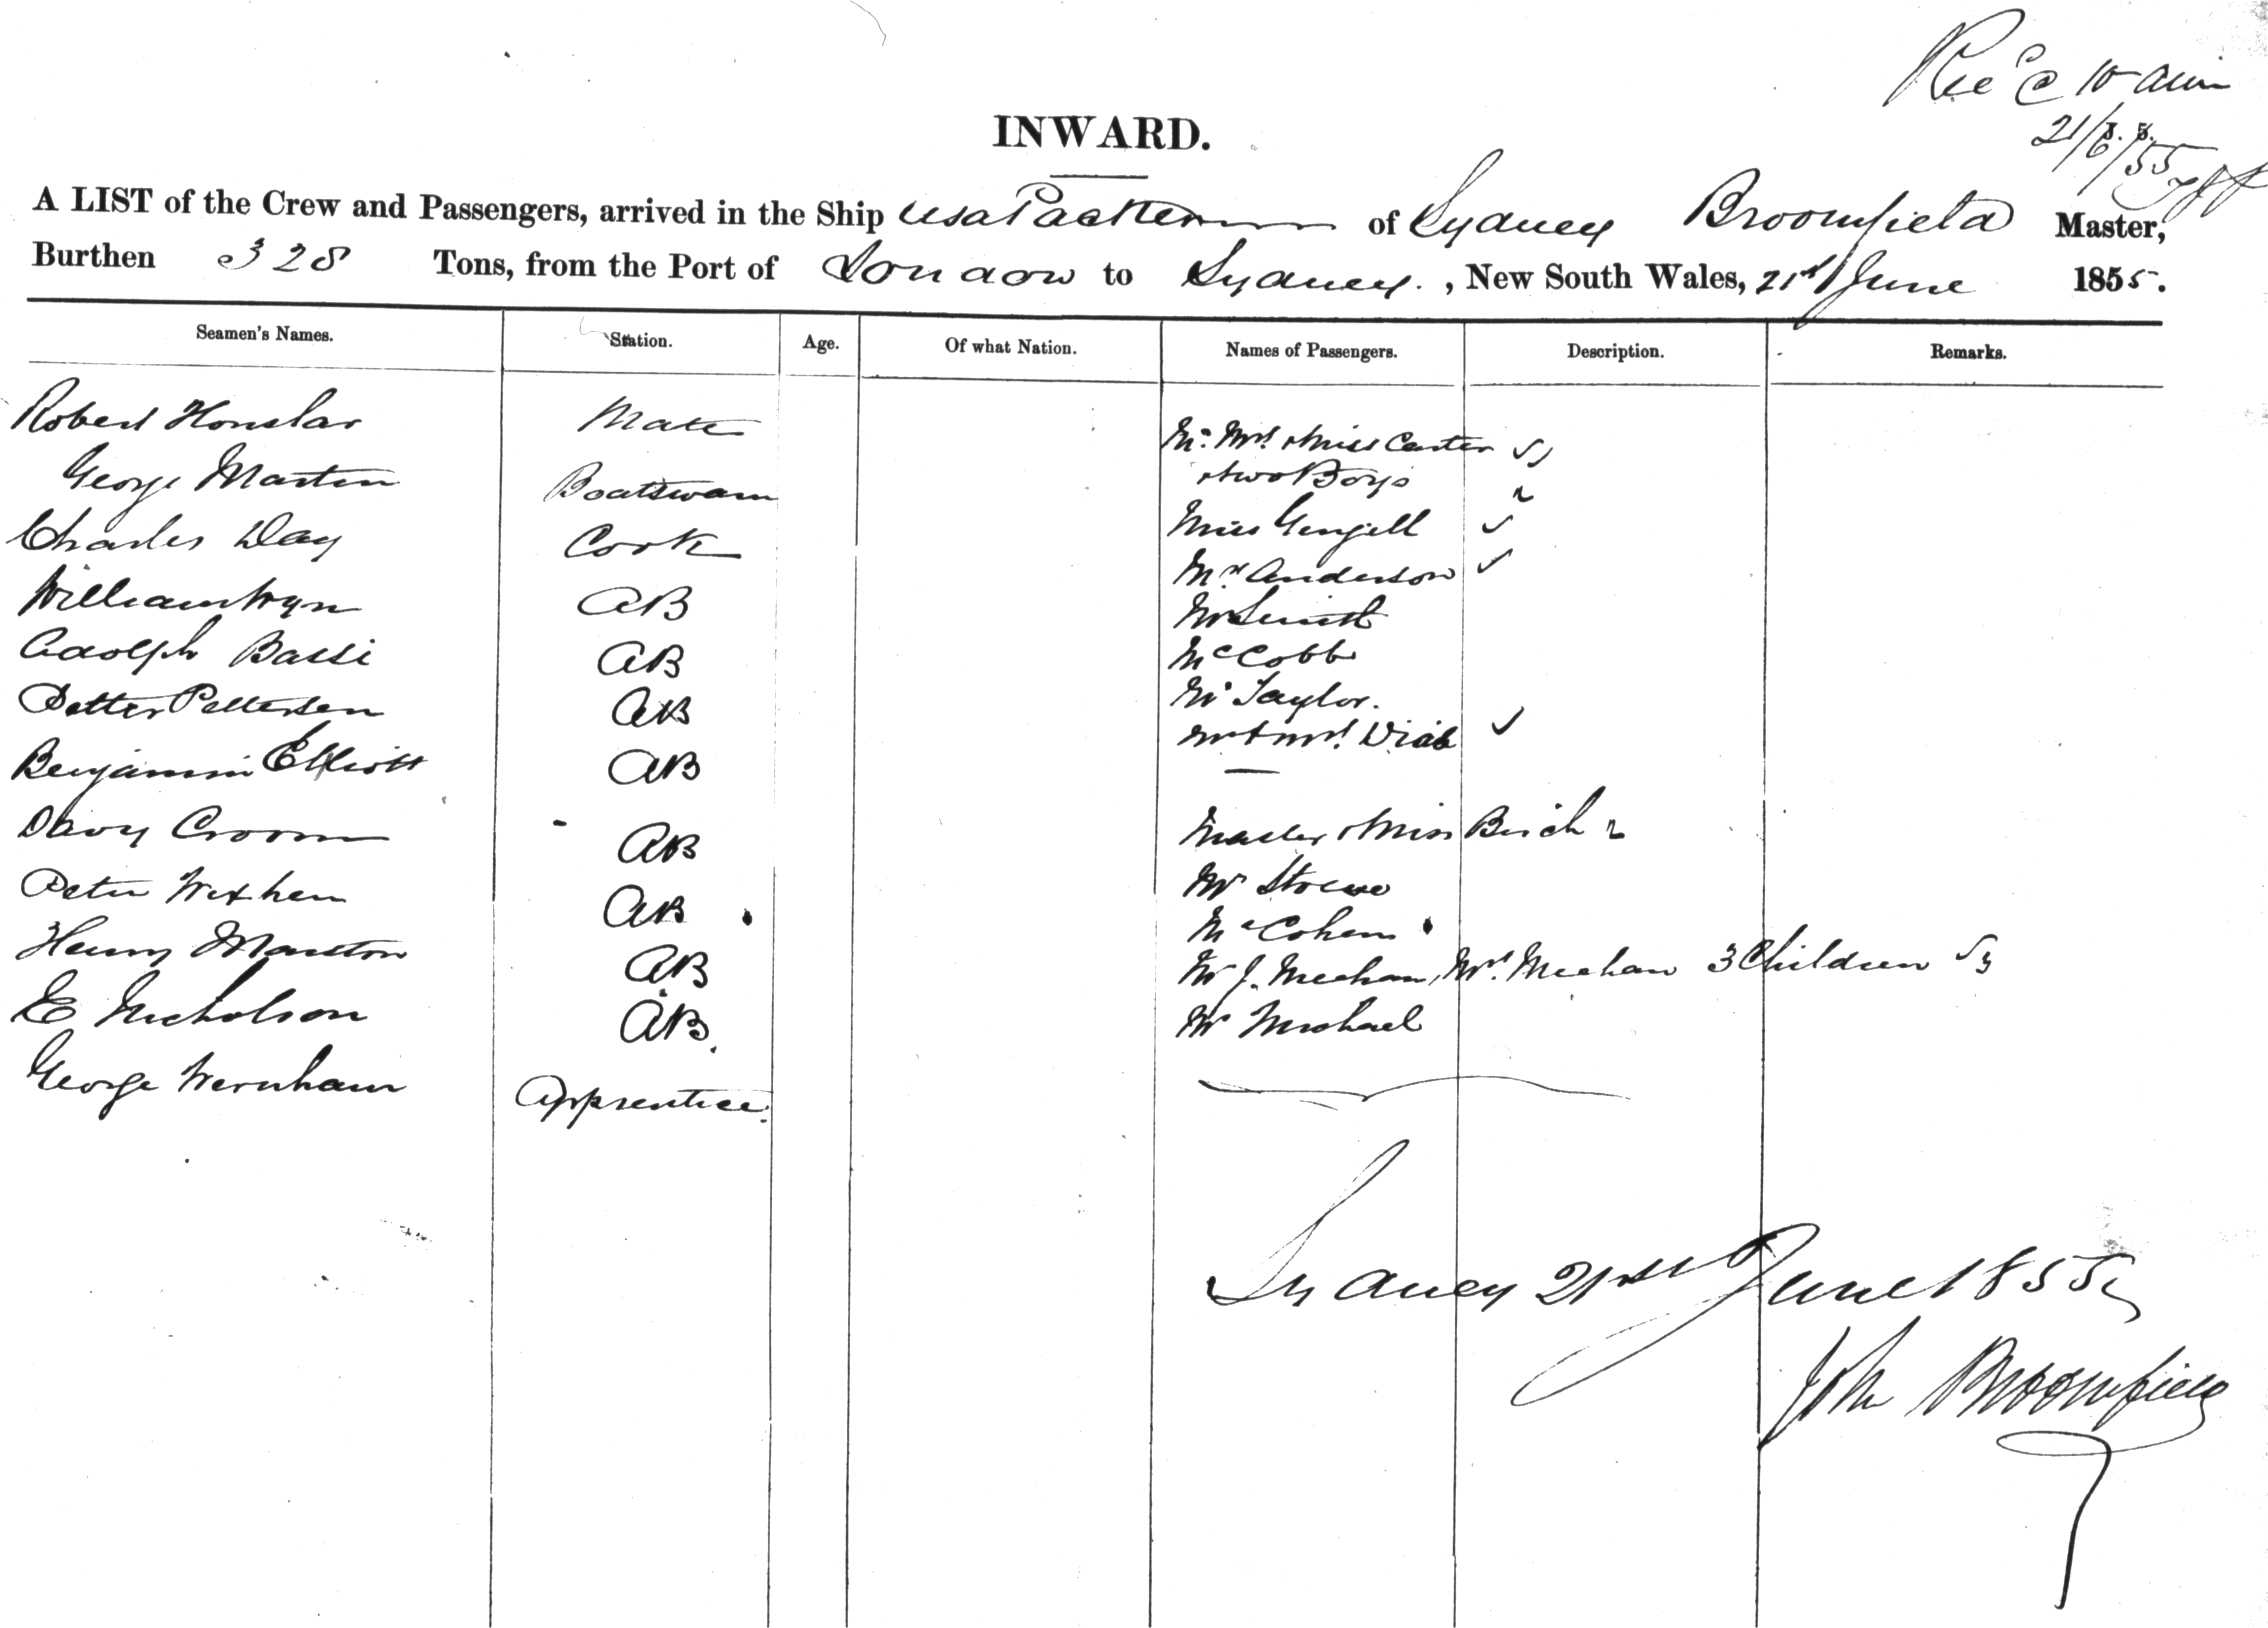 Rec'd @ 10 am
21/6/55
INWARD.
A LIST of the Crew and Passengers, arrived in the Ship of Sydney Broomfield Master,
Burthen 328 Tons, from the Port of London to Sydney. , New South Wales, 21st June 1855.
Seamen's Names. Station. Age. Of what Nation. Names of Passengers. Description. Remarks.
Robert Mate
George Martin Boatswain
Charles Day Cook
William Wyn AB
Adolph AB
Petter Pettersen AB
Benjamin Elliott AB
Davy Croom AB
Peter AB
Henry AB
E Nicholson AB.
George Wernham Apprentice.
Mr. Mrs. & Miss Carter 5
& two Boys
Miss
Mr Anderson
Mr Smith
Mr Cobb
Mr Taylor.
Mr & Mrs.
Master & Miss Birch 2
Mr
Mr Cohen
Mr J. Meehan, Mrs. Meehan 3 Children 5
Mr Michael
Sydney 21st June 1855
John Broomfield